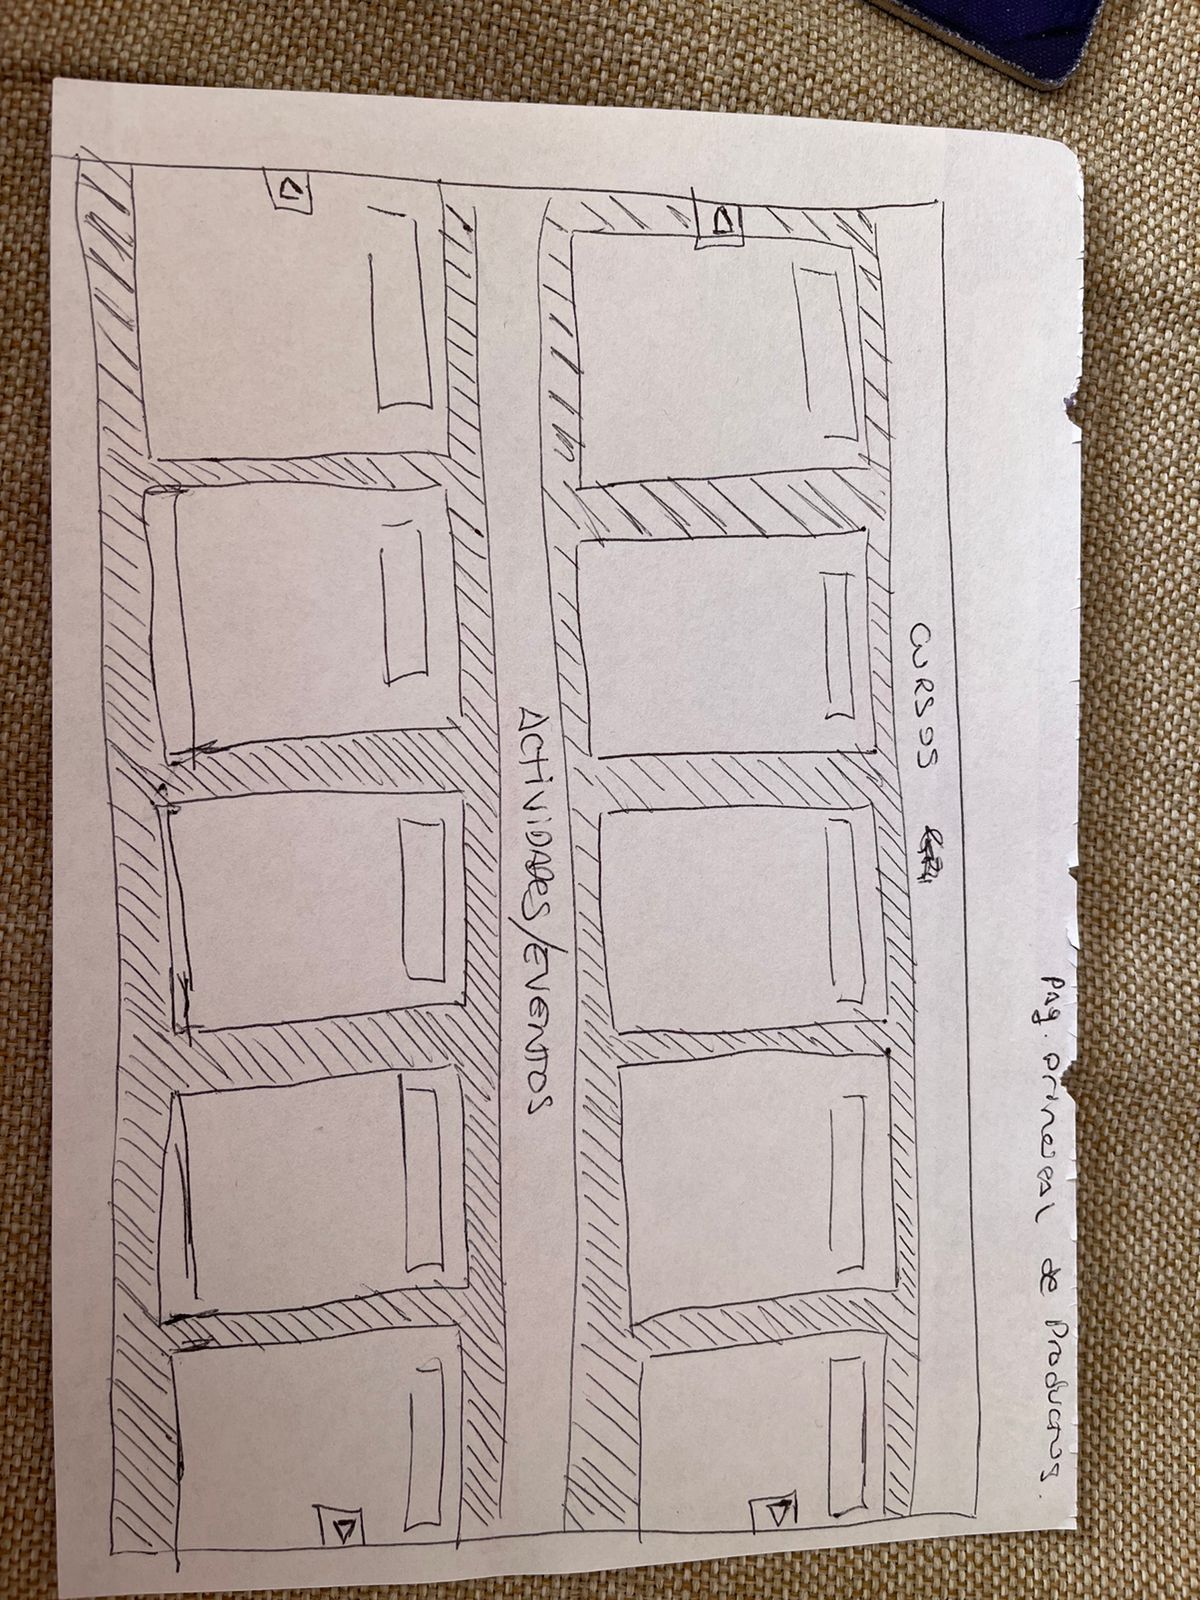 Pag. principal de Productos.
CURSOS
ACTIVIDADES/EVENTOS